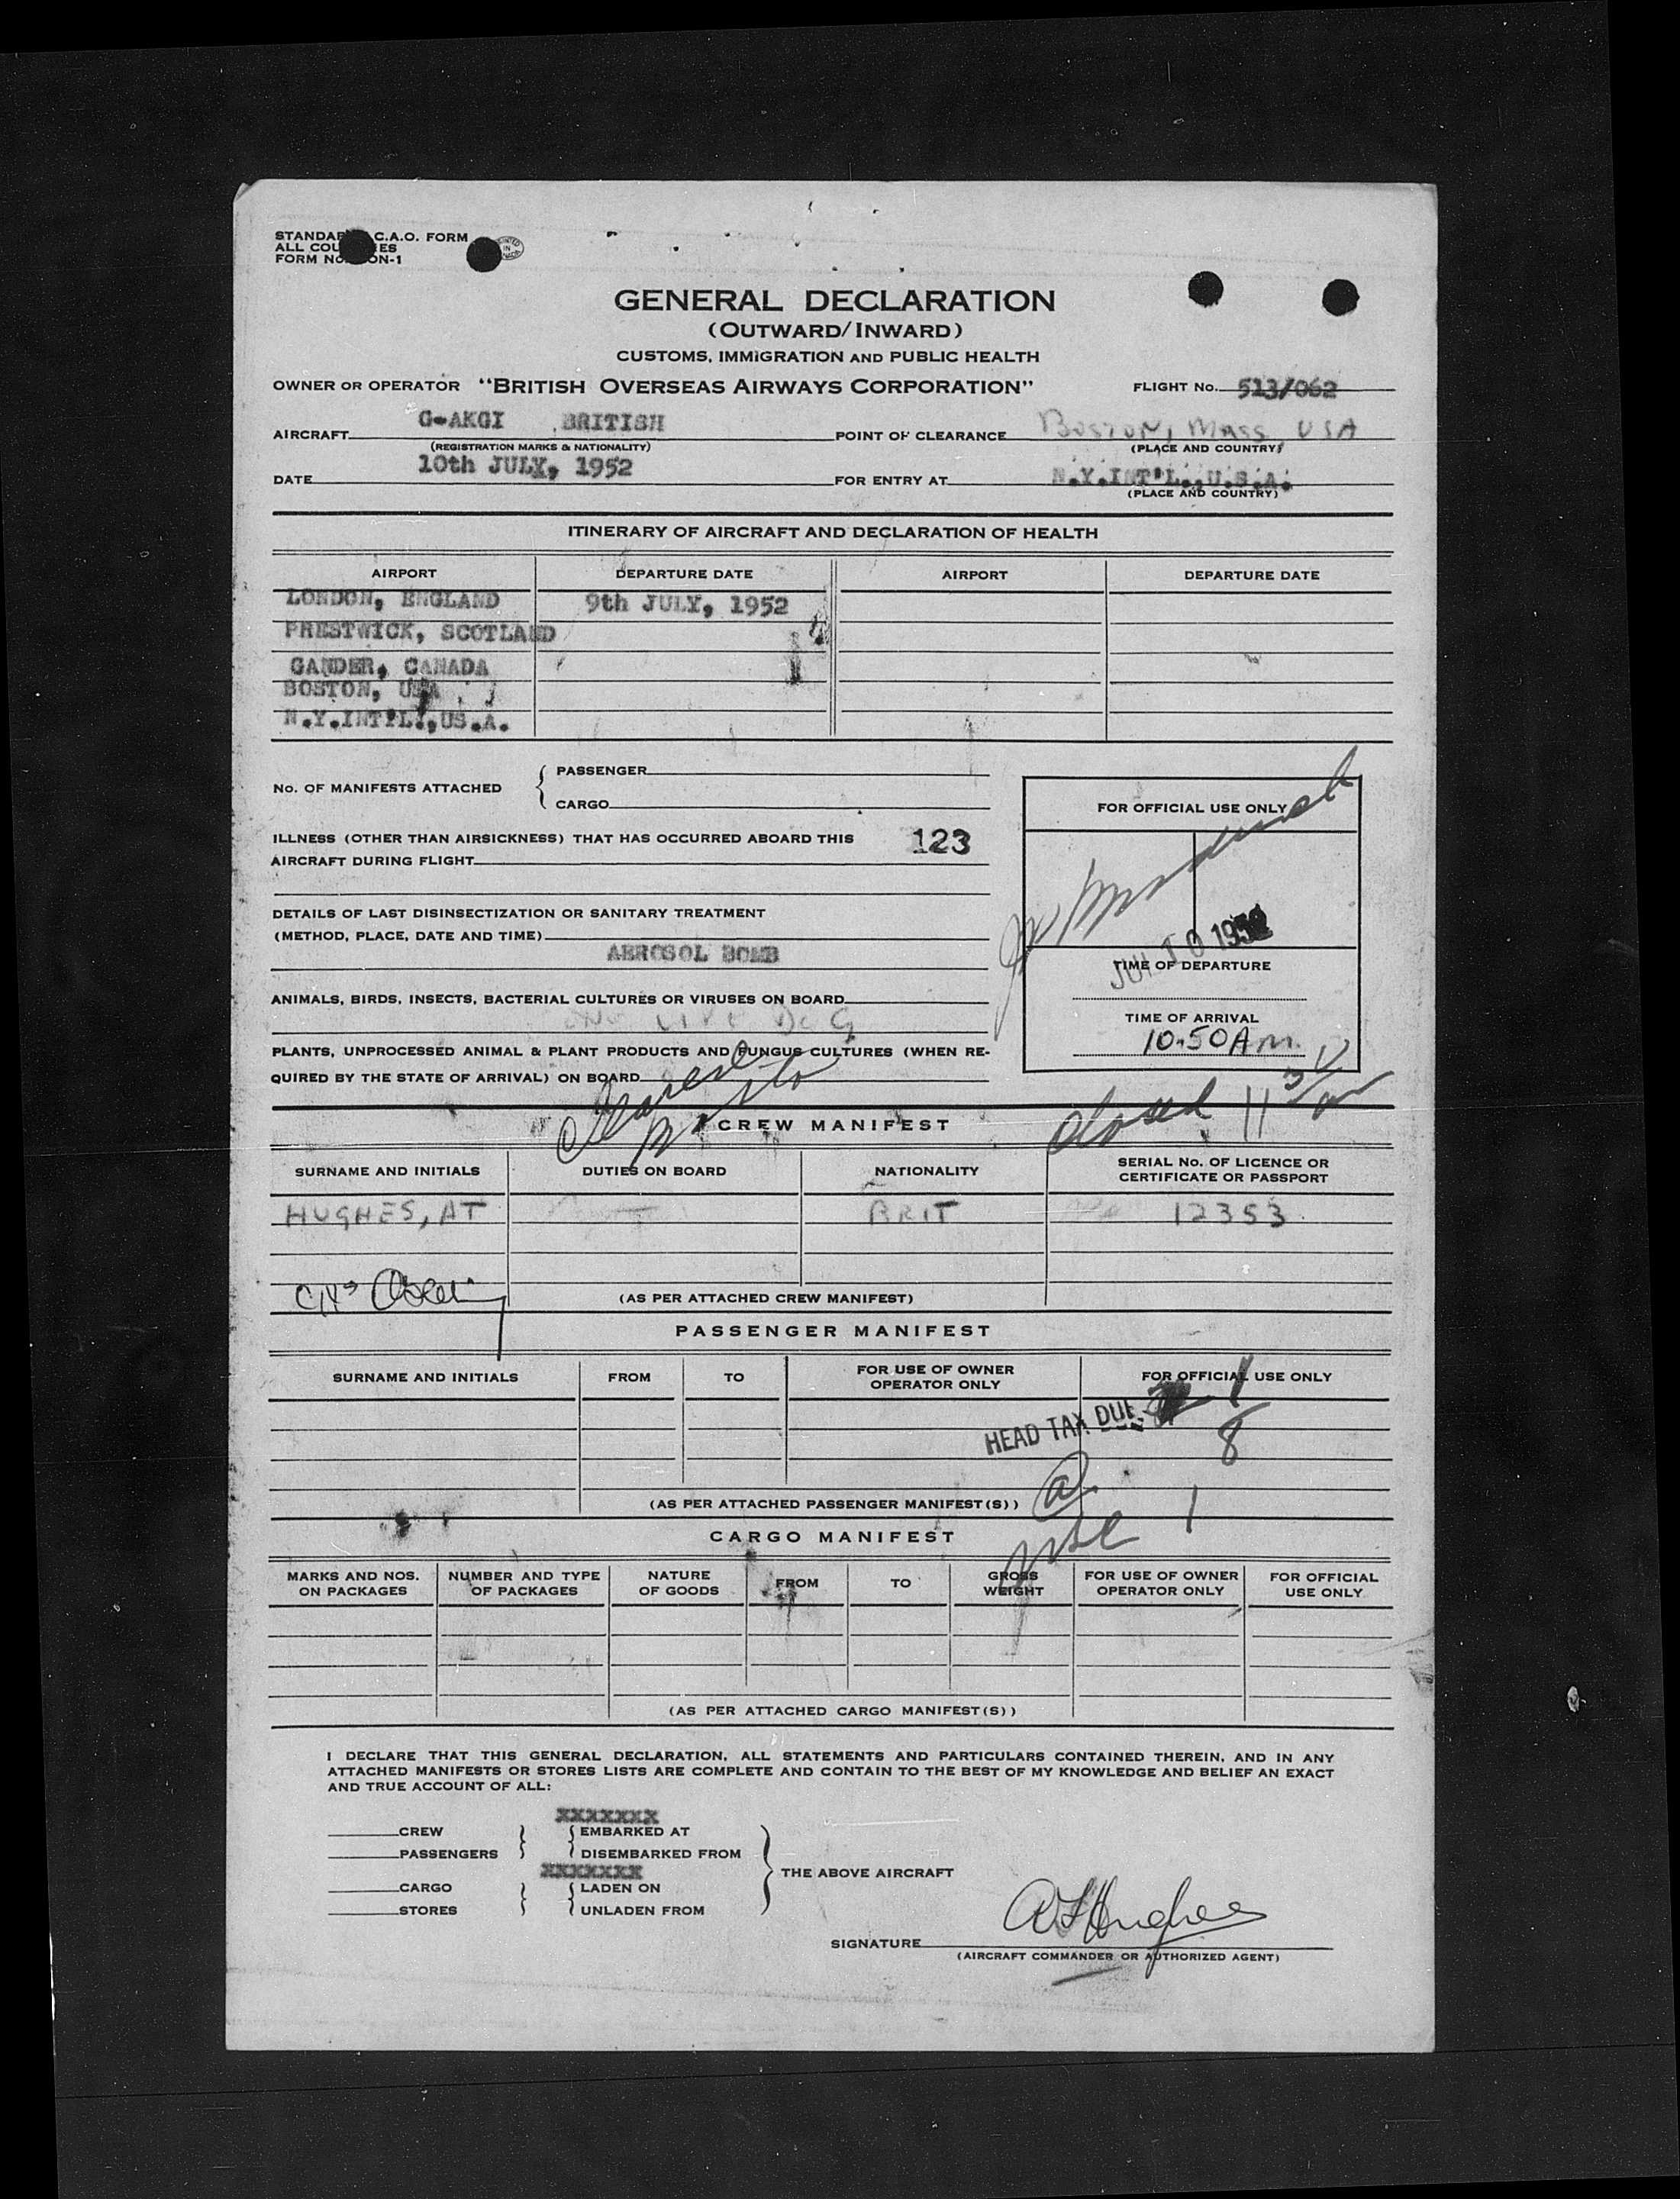 STANDAR C.A.O. FORM
ALL COU IES
FORM NO. ON-1
GENERAL DECLARATION
(OUTWARD/INWARD)
CUSTOMS, IMMIGRATION AND PUBLIC HEALTH
OWNER OR OPERATOR "BRITISH OVERSEAS AIRWAYS CORPORATION" FLIGHT No. 513/062
AIRCRAFT G-AKGI BRITISH POINT OF CLEARANCE BOSTON, MASS USA
(REGISTRATION MARKS & NATIONALITY) (PLACE AND COUNTRY)
DATE 10th JULY, 1952 FOR ENTRY AT N.Y.INT'L.,U.S.A.
(PLACE AND COUNTRY)
ITINERARY OF AIRCRAFT AND DECLARATION OF HEALTH
AIRPORT DEPARTURE DATE AIRPORT DEPARTURE DATE
LONDON, ENGLAND 9th JULY, 1952
PRESTWICK, SCOTLAND
GANDER, CANADA
BOSTON, USA
N.Y.INT'L.,US.A.
No. OF MANIFESTS ATTACHED { PASSENGER
CARGO
FOR OFFICIAL USE ONLY
ILLNESS (OTHER THAN AIRSICKNESS) THAT HAS OCCURRED ABOARD THIS 123
AIRCRAFT DURING FLIGHT
DETAILS OF LAST DISINSECTIZATION OR SANITARY TREATMENT
(METHOD, PLACE, DATE AND TIME)
AEROSOL BOMB
JUL 10 1952
TIME OF DEPARTURE
ANIMALS, BIRDS, INSECTS, BACTERIAL CULTURES OR VIRUSES ON BOARD
ONE LIVE DOG
TIME OF ARRIVAL
10.50 A m.
PLANTS, UNPROCESSED ANIMAL & PLANT PRODUCTS AND FUNGUS CULTURES (WHEN RE-
QUIRED BY THE STATE OF ARRIVAL) ON BOARD
Closed 11
CREW MANIFEST
SURNAME AND INITIALS DUTIES ON BOARD NATIONALITY SERIAL No. OF LICENCE OR
CERTIFICATE OR PASSPORT
HUGHES, AT BRIT 12353
(AS PER ATTACHED CREW MANIFEST)
PASSENGER MANIFEST
SURNAME AND INITIALS FROM TO FOR USE OF OWNER
OPERATOR ONLY FOR OFFICIAL USE ONLY
HEAD TAX DUE 1
8
(AS PER ATTACHED PASSENGER MANIFEST(S)) 1
CARGO MANIFEST
MARKS AND NOS.
ON PACKAGES NUMBER AND TYPE
OF PACKAGES NATURE
OF GOODS FROM TO GROSS
WEIGHT FOR USE OF OWNER
OPERATOR ONLY FOR OFFICIAL
USE ONLY
(AS PER ATTACHED CARGO MANIFEST(S))
I DECLARE THAT THIS GENERAL DECLARATION, ALL STATEMENTS AND PARTICULARS CONTAINED THEREIN, AND IN ANY
ATTACHED MANIFESTS OR STORES LISTS ARE COMPLETE AND CONTAIN TO THE BEST OF MY KNOWLEDGE AND BELIEF AN EXACT
AND TRUE ACCOUNT OF ALL:
XXXXXXX
CREW EMBARKED AT
PASSENGERS DISEMBARKED FROM
XXXXXXX
THE ABOVE AIRCRAFT
CARGO LADEN ON
STORES UNLADEN FROM
SIGNATURE A T Hughes
(AIRCRAFT COMMANDER OR AUTHORIZED AGENT)